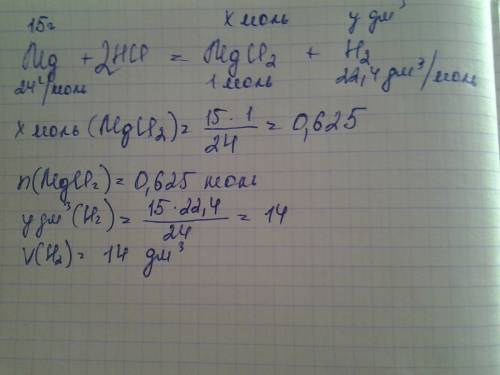 15г x моль y дм³
Mg + 2HCl = MgCl₂ + H₂
24г/моль 1 моль 22,4 дм³/моль
x моль (MgCl₂) = 15·1/24 = 0,625
n(MgCl₂) = 0,625 моль
y дм³ (H₂) = 15·22,4/24 = 14
V(H₂) = 14 дм³